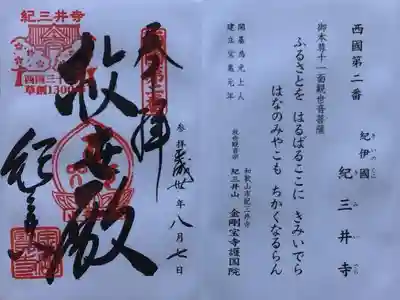 西國第二番
紀伊國 紀三井寺
きいのくに き み い でら
御本尊十一面観世音菩薩
ふるさとを はるばるここに きみいでら
はなのみやこも ちかくなるらん
開基為光上人
建立宝亀元年
救世観音宗
和歌山市紀三井寺
紀三井山 金剛宝寺護国院
紀三井寺
西国三十
草創1300年
奉拝
救世殿
紀三井寺
参拝平成卅年八月七日